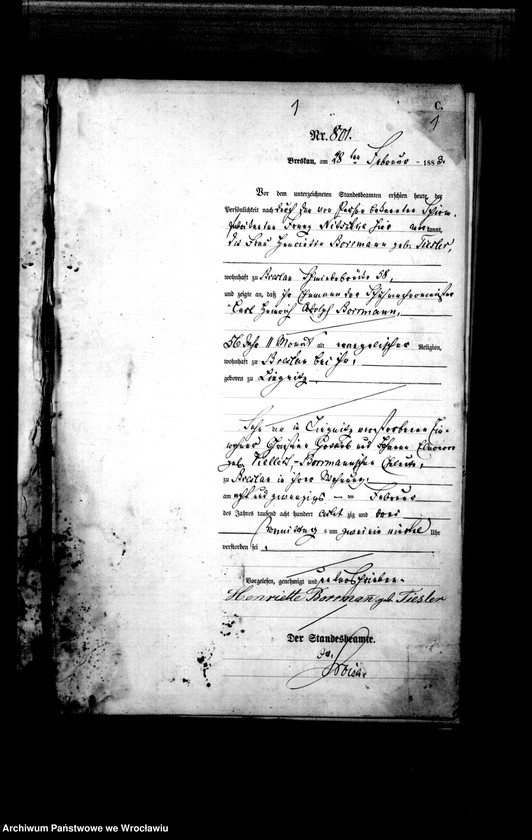 1
C.
1
Nr. 801.
Breslau, am 28ten Februar 1883.
Vor dem unterzeichneten Standesbeamten erschien heute, der
Persönlichkeit nach durch den von Person bekannten
Franz Nitschke hier anerkannt,
die Frau Henriette Borrmann geb. Tiesler,
wohnhaft zu Breslau Schmiedebrücke 58,
und zeigte an, daß ihr Ehemann der Schuhmachermeister
Carl Heinrich Adolph Borrmann,
Jahr 11 Monat alt evangelischer Religion,
wohnhaft zu Breslau bei ihr,
geboren zu Liegnitz
Sohn der in Liegnitz verstorbenen
Gottlieb und Eleonore
geb. Borrmannschen Eheleute,
zu Breslau in ihrer Wohnung,
am acht und zwanzigsten Februar
des Jahres tausend acht hundert achtzig und drei
Vormittag um zwei ein viertel Uhr
verstorben sei.
Vorgelesen, genehmigt und unterschrieben.
Henriette Borrman geb. Tiesler
Der Standesbeamte.
Archiwum Państwowe we Wrocławiu